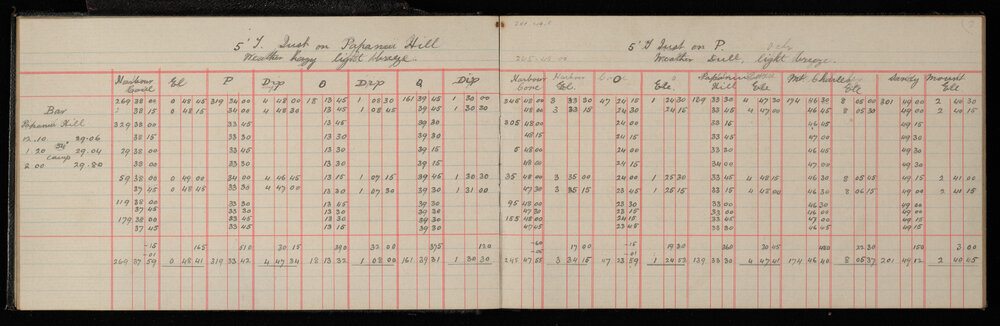 5" T. Inst on Papanui Hill
Weather hazy light breeze
Harbour Cone El P Dip O Dip Q Dip
269 38 00 0 48 45 319 34 00 4 48 00 18 13 45 1 08 30 161 39 45 1 30 00
38 15 0 48 15 34 00 4 48 30 13 45 1 08 45 39 45 1 30 30
Bar
Papanui Hill 329 38 00 33 45 13 45 39 30
12.10 29.06 38 15 33 30 13 30 39 30
1 20 29.04 29 38 00 33 45 13 30 39 15
camp
2 00 29.80 38 00 33 30 13 30 39 15
59 38 00 0 49 00 34 00 4 46 45 13 15 1 07 15 39 45 1 30 30
37 45 0 48 45 33 30 4 47 00 13 30 1 07 30 39 30 1 31 00
119 38 00 33 30 13 45 39 30
37 45 33 30 13 30 39 30
179 38 00 33 45 13 30 39 30
37 45 33 45 13 30 39 30
-15 165 510 30 15 390 32 00 375 120
-01
269 37 59 0 48 41 319 33 42 4 47 34 18 13 32 1 08 00 161 39 31 1 30 30
5" T Inst on P.
Weather Dull, light breeze.
Harbour Cone Harbour El. O Ele Papanui Hill Ele Mt. Charles Ele Sandy Mount Ele
345 48 00 3 33 30 47 24 15 1 24 30 139 33 30 4 47 30 174 46 30 8 05 00 201 49 00 2 40 30
48 00 3 33 15 24 00 1 24 45 33 45 4 47 00 46 30 8 05 30 49 00 2 40 15
305 48 00 24 00 33 15 46 45 49 15
48 15 24 00 33 45 47 00 49 30
5 48 00 24 00 33 30 46 45 49 15
48 00 24 15 34 00 47 00 49 30
35 48 00 3 35 00 24 00 1 25 30 33 15 4 48 15 46 45 8 05 45 49 15 2 41 00
47 30 3 35 15 23 45 1 25 15 33 15 4 48 00 46 30 8 06 15 49 00 2 40 15
95 48 00 23 30 33 15 46 30 49 00
47 30 23 15 33 00 46 15 49 00
155 48 00 24 00 33 15 46 45 49 15
47 45 23 30 33 30 46 45 49 00
-60 17 00 -15 19 30 360 30 45 480 22 30 150 3 00
245 47 55 3 34 15 47 23 59 1 24 53 139 33 30 4 47 41 174 46 40 8 05 37 201 49 12 2 40 45